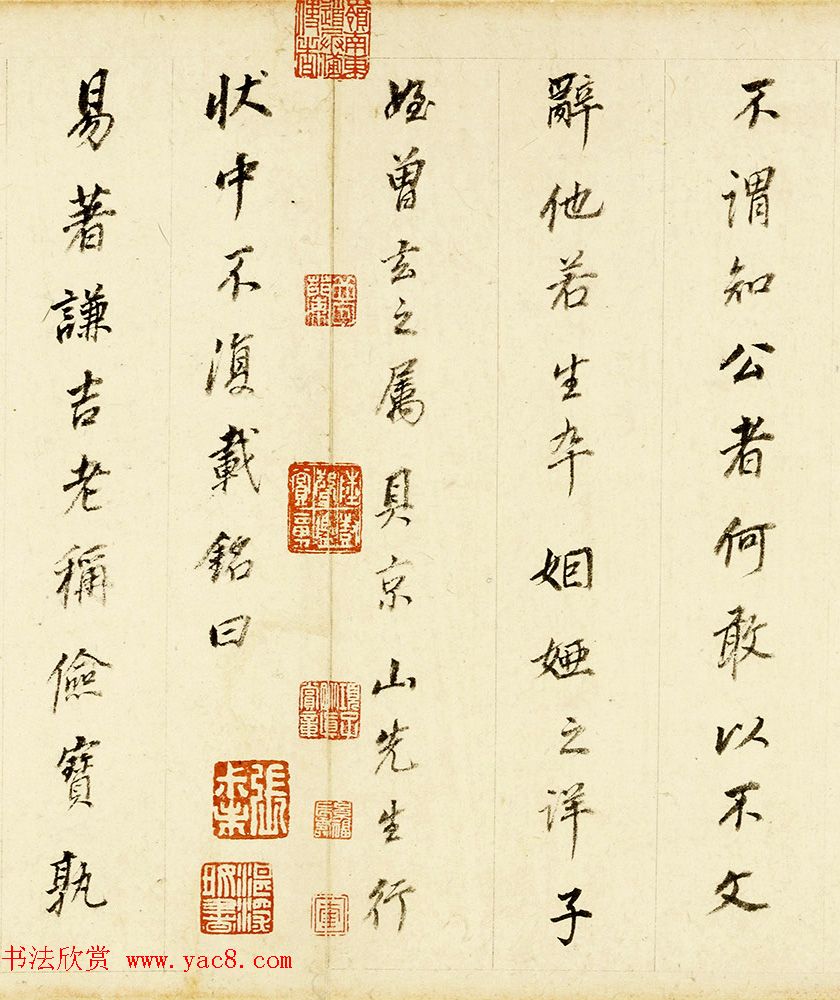 不謂知公者何敢以不文
辭他若生卒姻婭之詳子
姪曾玄之屬具京山先生行
狀中不復載銘曰
易著謙吉老稱儉寶孰
书法欣赏 www.yac8.com